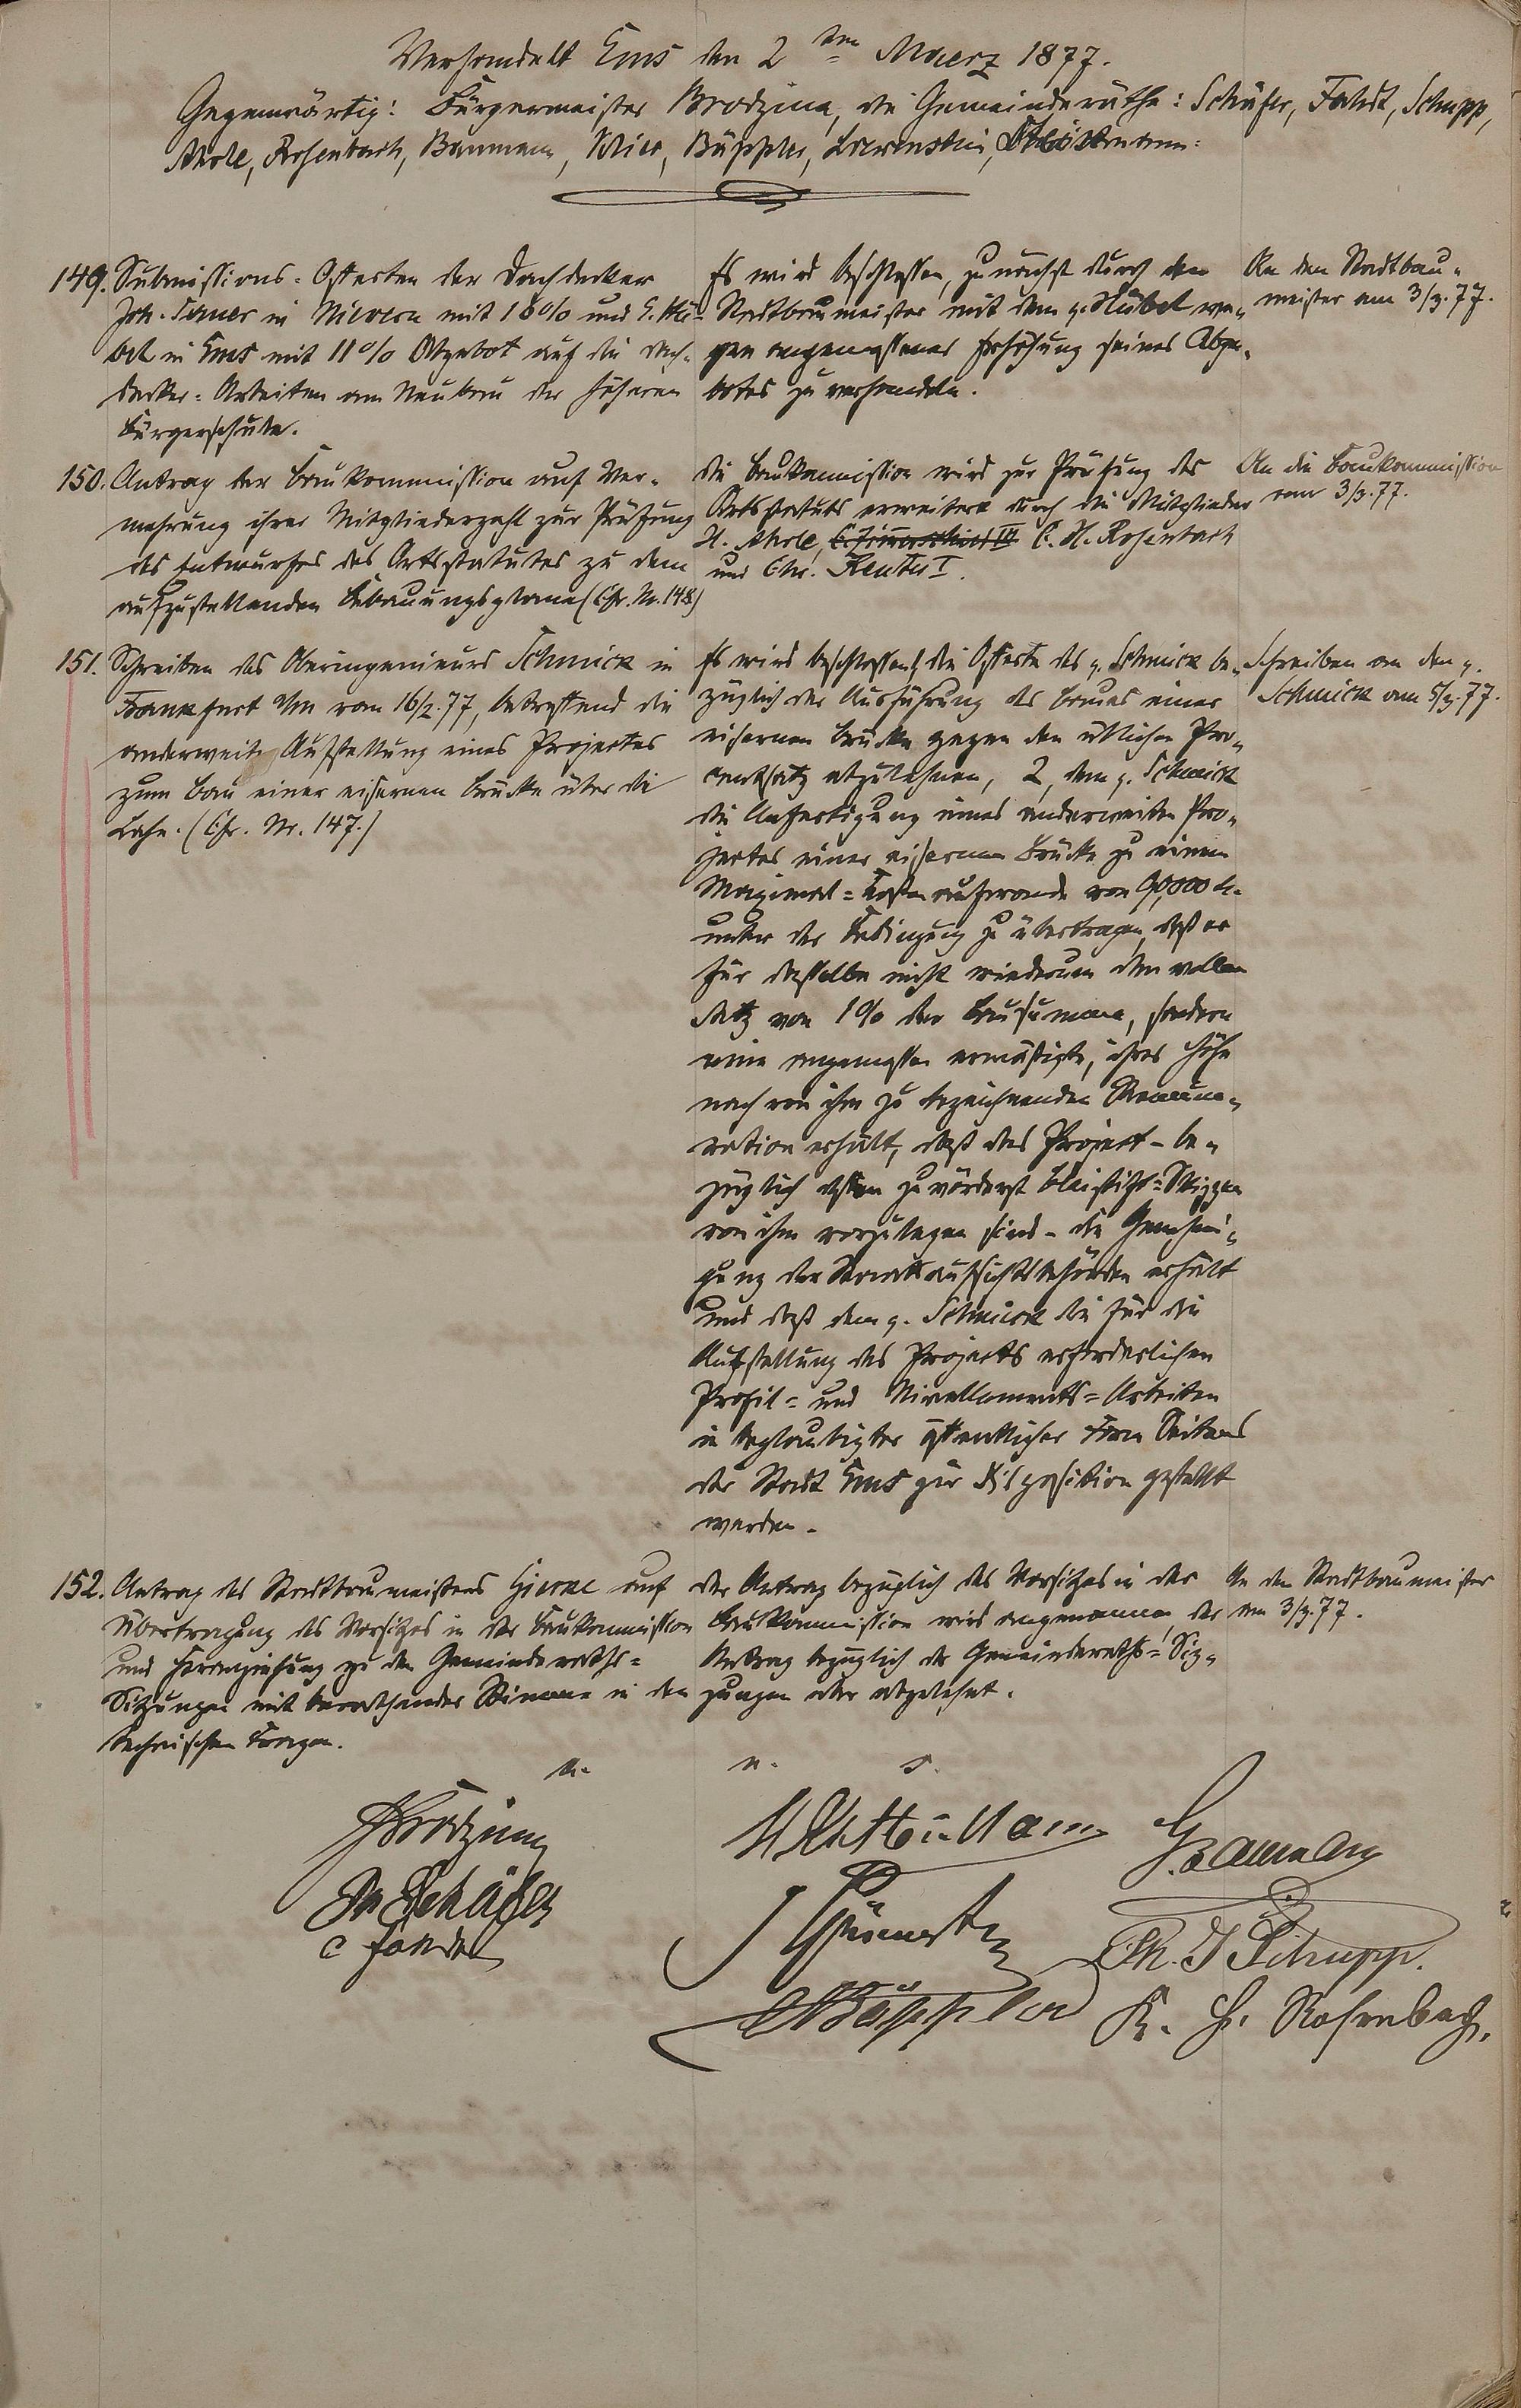 Verhandelt Ems den 2ten Maerz 1877.
Gegenwärtig: Bürgermeister Brodzina, die Gemeinderäthe: Schäfer, Fahdt, Schupp,
Rosenbach, Baumann, Büppler, Loewenstein,
149. Submissions-Offerten der Dachdecker
Joh. in Nievern mit 18% und
bel in Ems mit 11% Abgebot auf die Dach-
decker-Arbeiten am Neubau der höheren
Bürgerschule.
Es wird beschlossen, zunächst durch den
Stadtbaumeister mit dem p. Hübel we-
gen angemessener Erhöhung seines Abge-
botes zu verhandeln.
An den Stadtbau-
meister am 3/3.77.
150. Antrag der Baukommission auf Ver-
mehrung ihrer Mitgliederzahl zur Prüfung
des Entwurfes des Ortsstatutes zu dem
aufzustellenden Bebauungsplane (Cfr. Nr. 148)
Die Baukommission wird zur Prüfung des
Ortsstatuts erweitert durch die Mitglieder
H. C. H. Rosenbach
und Chr. Reuter I.
An die Baukommission
vom 3/3.77.
151. Schreiben des Oberingenieurs Schmick in
Frankfurt a/m vom 16/2.77, betreffend die
anderweite Aufstellung eines Projectes
zum Bau einer eisernen Brücke über die
Lahn. (Cfr. Nr. 147.)
Es wird beschlossen 1, die Offerte des p. Schmick be-
züglich der Ausführung des Baues einer
eisernen Brücke gegen den üblichen Pro-
centsatz abzulehnen, 2, dem p. Schmick
die Anfertigung eines anderweiten Pro-
jectes einer eisernen Brücke zu einem
Maximal-Kostenaufwande von 90,000 M.
unter der Bedingung zu übertragen, daß er
für dasselbe nicht wiederum den vollen
Satz von 1% der Bausumme, sondern
eine angemessen ermäßigte, ihrer Höhe
nach von ihm zu bezeichnenden Remune-
ration erhält, daß das Project - be-
züglich dessen zuvörderst Bleistift-Skizzen
von ihm vorzulegen sind - die Genehmi-
gung der Staatsaufsichtsbehörden erhält
und daß dem p. Schmick die für die
Aufstellung des Projects erforderlichen
Profil- und Nivellements-Arbeiten
in beglaubigter öffentlicher Form Seitens
der Stadt Ems zur Disposition gestellt
werden.
Schreiben an den p.
Schmick am 5/3.77.
152. Antrag des Stadtbaumeisters auf
Übertragung des Vorsitzes in der Baukommission
und Heranziehung zu den Gemeinderaths-
Sitzungen mit berathender Stimme in den
technischen Fragen.
Der Antrag bezüglich des Vorsitzes in der
Baukommission wird angenommen, der
Antrag bezüglich der Gemeinderaths-Sit-
zungen aber abgelehnt.
An den Stadtbaumeister
am 3/3.77.
u. s.
Brodzina
Schäfer
C Fahdt
G. Baumann
Ph. J Schupp.
Büppler
K. H. Rosenbach.